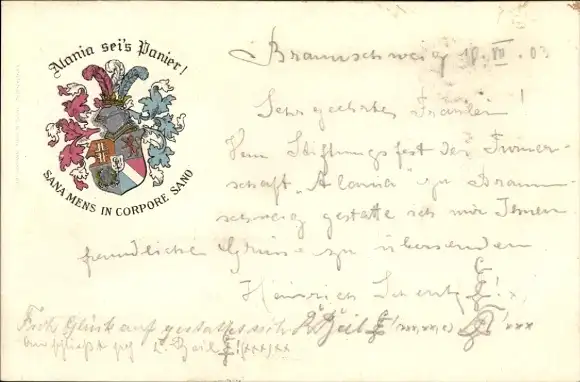 Alania sei's Panier!
SANA MENS IN CORPORE SANO
Braunschweig 18. VII. 0
Sehr geehrtes Fräulein!
Vom Stiftungsfest der Turner-
schaft „Alania" zu Braun-
schweig gestatte ich mir Ihnen
freundliche Grüsse zu übersenden
Heinrich
Glück auf gestattet sich